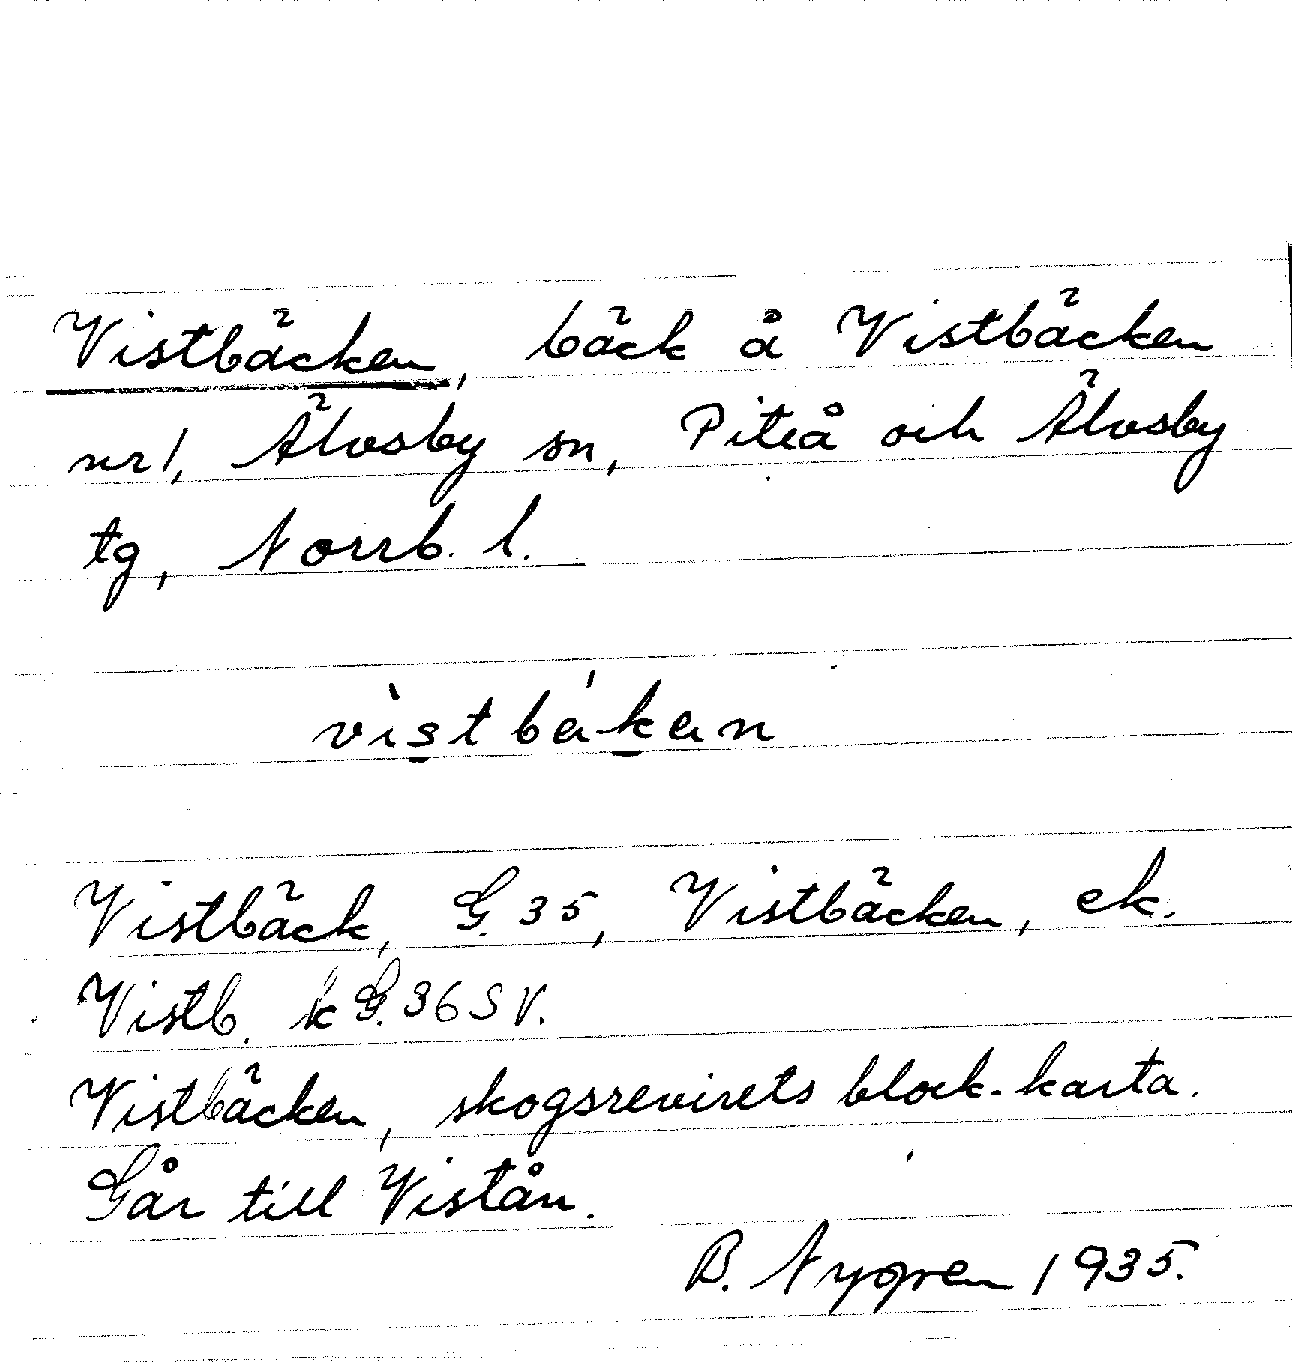 Vistbäcken, bäck å Vistbäcken
nr 1, Älvsby sn, Piteå och Älvsby
tg, Norrb. l.
vìstbákan
Vistbäck, G. 35, Vistbäcken, ek.
Vistb. k G. 36 SV.
Vistbäcken, skogsrevirets block-karta.
Går till Vistån.
B. Nygren 1935.